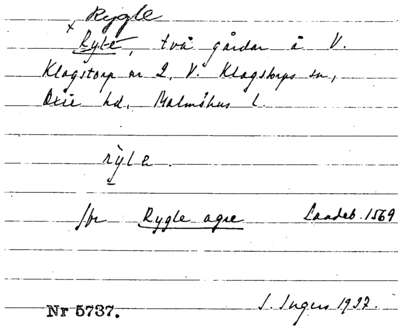 Rygle
x Ryle, två gårdar å V.
Klagstorp nr 2, V. Klagstorps sn,
Oxie hd, Malmöhus l.
ryle.
jfr Rygle agre Landeb. 1569
Nr 5737.
I. Ingers 1937.